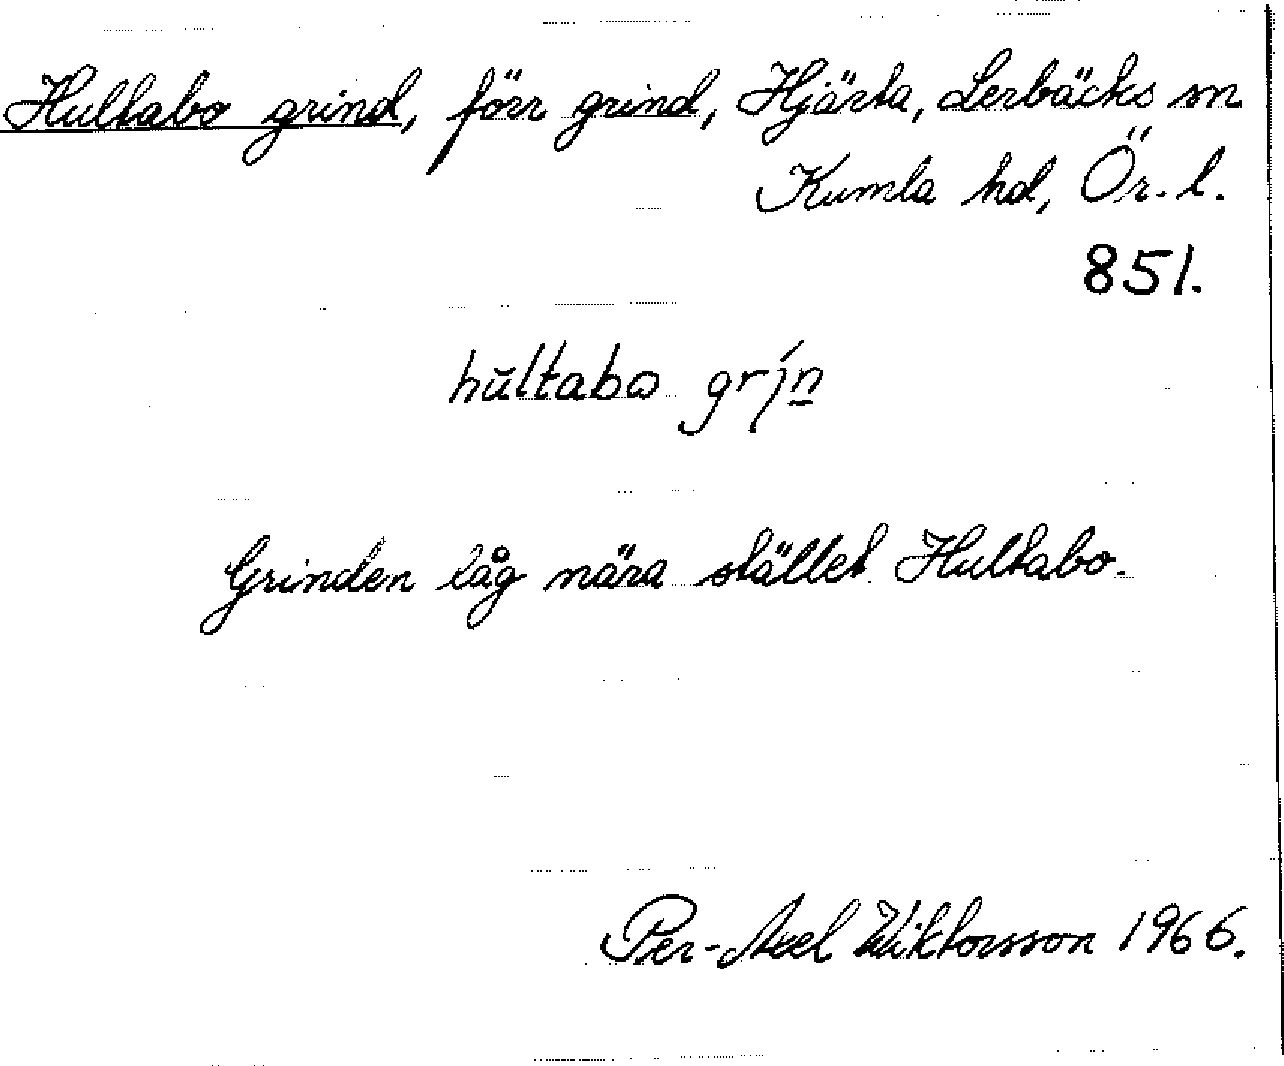 Hultabo grind, förr grind, Hjärta, Lerbäcks sn
Kumla hd, Ör. l.
851.
hu̇ltabɷ grín̲
Grinden låg nära stället Hultabo.
Per-Axel Wiktorsson 1966.